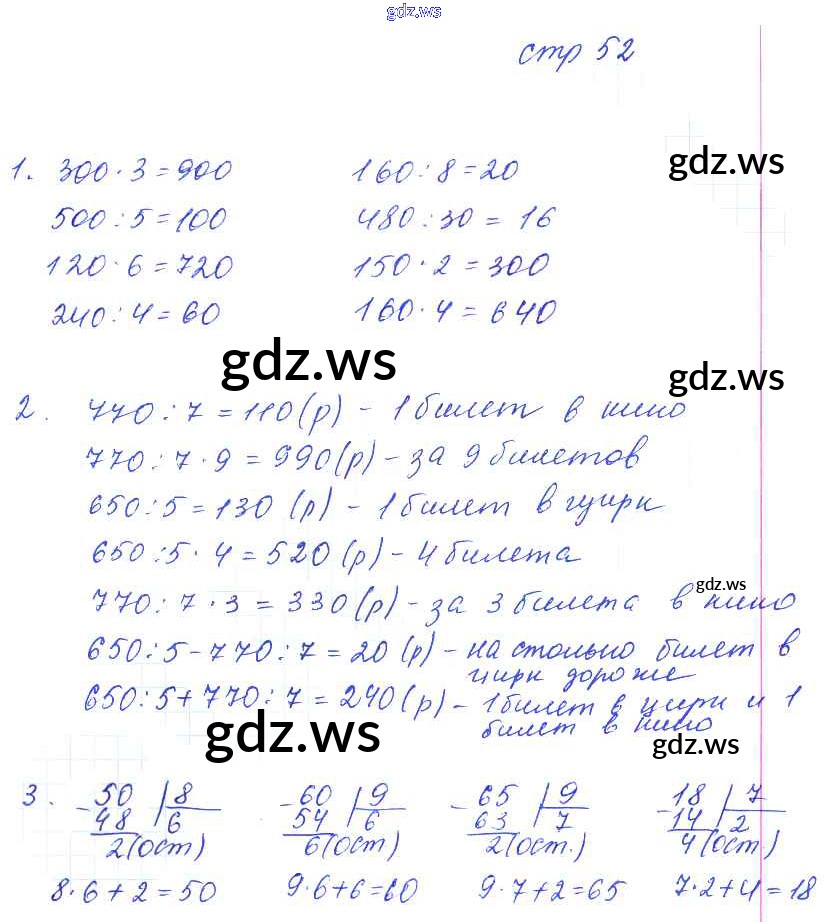 gdz.ws
стр 52
1. 300·3=900 160:8=20
gdz.ws
500:5=100 480:30=16
120·6=720 150·2=300
240:4=60 160·4=640
gdz.ws
gdz.ws
2. 770:7=110(р) - 1 билет в кино
770:7·9=990(р) - за 9 билетов
650:5=130 (р) - 1 билет в цирк
650:5·4=520(р) - 4 билета
gdz.ws
770:7·3=330(р) - за 3 билета в кино
650:5-770:7=20(р) - на столько билет в
цирк дороже
650:5+770:7=240(р) - 1 билет в цирк и 1
билет в кино
gdz.ws
gdz.ws
3. -50 |8 -60 |9 -65 |9 -18 |7
48 6 54 6 63 7 14 2
2(ост) 6(ост) 2(ост.) 4(ост.)
8·6+2=50 9·6+6=60 9·7+2=65 7·2+4=18